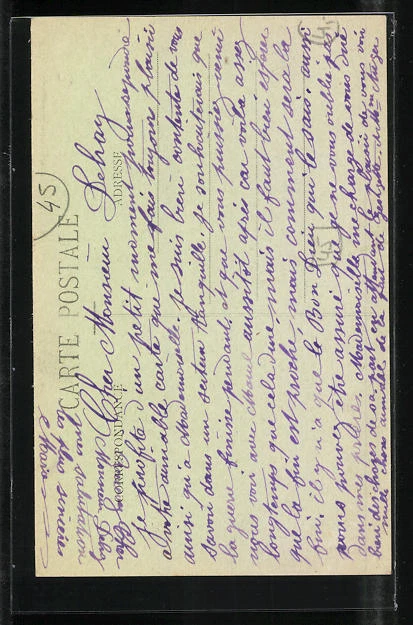 45
145
CARTE POSTALE
CORRESPONDANCE
ADRESSE
Cher Monsieur Delray
Je profite d'un petit moment pour repondre
a votre aimable carte que me fais toujour plaisir
ainsi qu'a Mademoiselle. je suis bien contente de vous
savoir dans un secteur tranquille. je souhaiterais que
la guerre finisse pendant, et que vous puissiez ainsi
nous voir avec aussitôt après car voilà assez
longtemps que cela dure mais il faut bien espérer
que la fin est proche, mais comment sera la
fin, il y n'a que le Bon Dieu qui le sais, aussi
vous pouvez être assuré que je ne vous oublie pas
dans mes prières. Mademoiselle me charge de vous dire
bien des choses de sa part en attendant le plaisir de vous voir
mille amitiés de la part de
Cher Monsieur Delray
mes salutation
les plus sincère
Marie
45